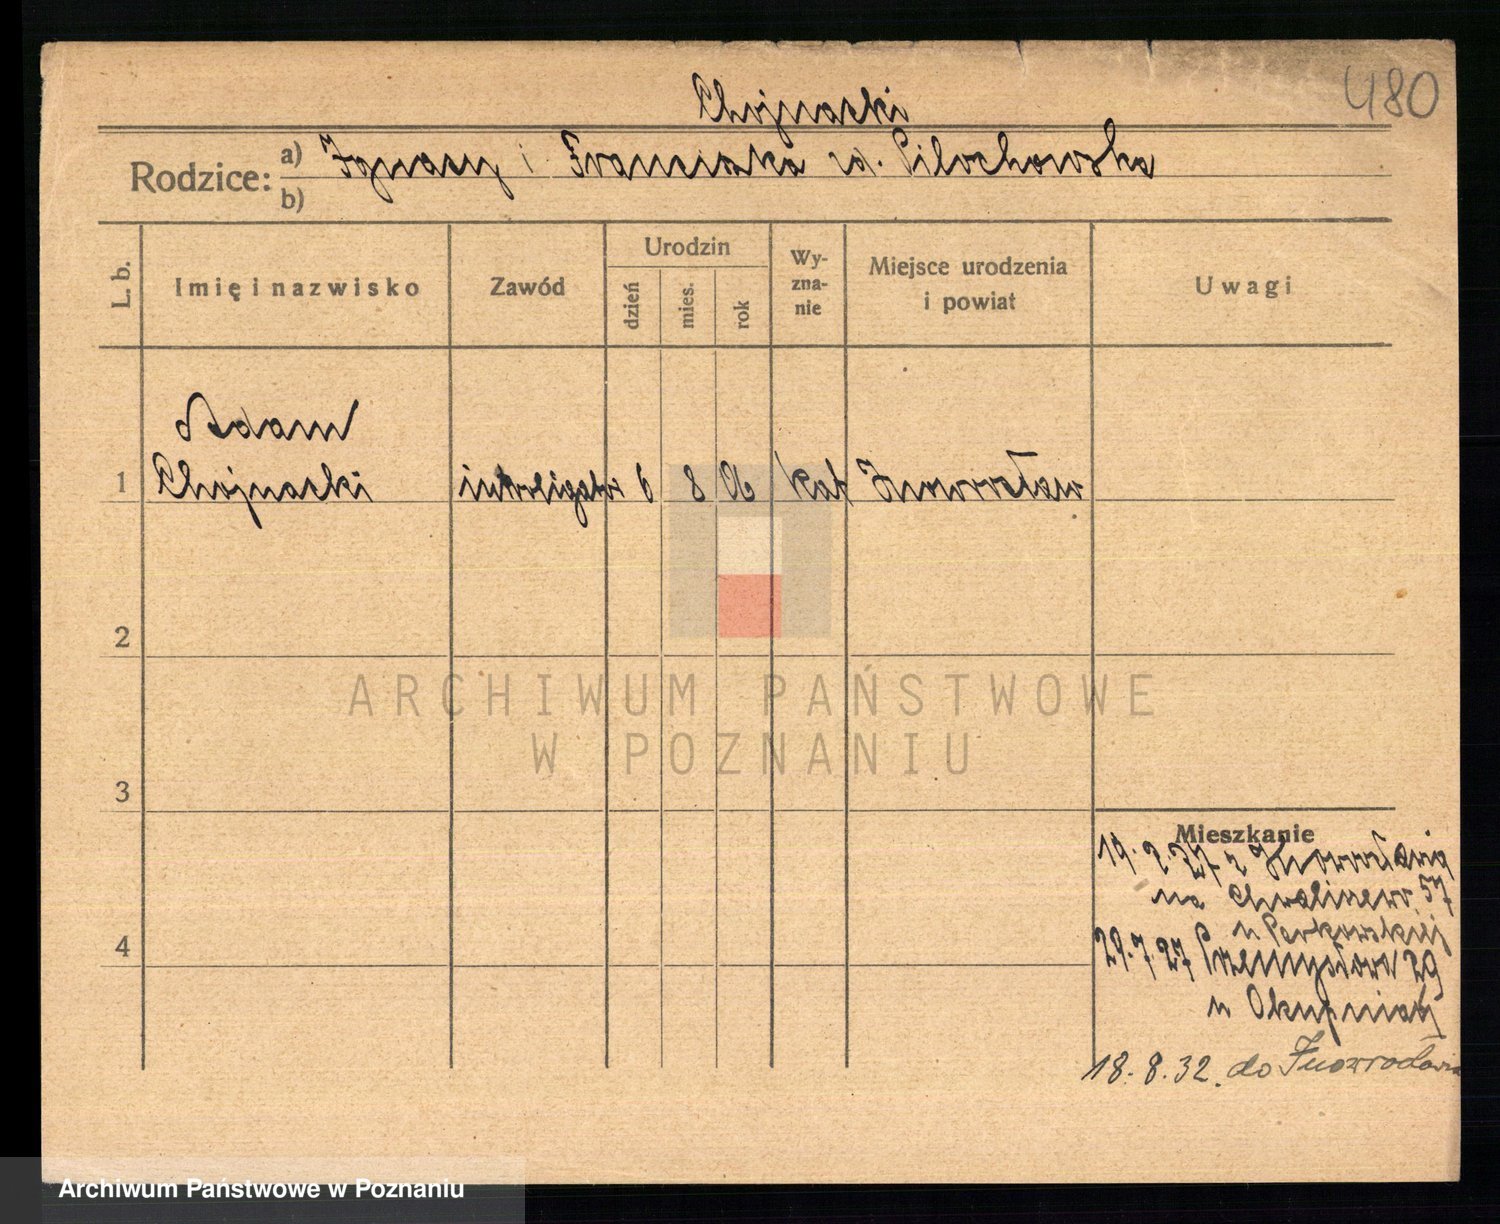 480
Chojnacki
Rodzice: a) Ignacy i Franciszka
b)
L. b. Imię i nazwisko Zawód Urodzin dzień mies. rok Wy-zna-nie Miejsce urodzenia i powiat Uwagi
Adam
1 Chojnacki introligator 6 8 kat Inowrocław
2
ARCHIWUM PAŃSTWOWE
W POZNANIU
3
Mieszkanie
19. 2. 27 z Inowrocławia
na Chwaliszewo 57
4
29. 7. 27 Przemysłowa 29
u
18. 8. 32. do Inowrocławia
Archiwum Państwowe w Poznaniu